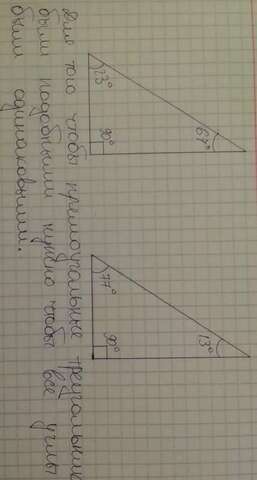 67° 13°
23° 90° 77° 90°
Для того чтобы прямоугольные треугольники
были подобными нужно чтобы все углы
были одинаковыми.